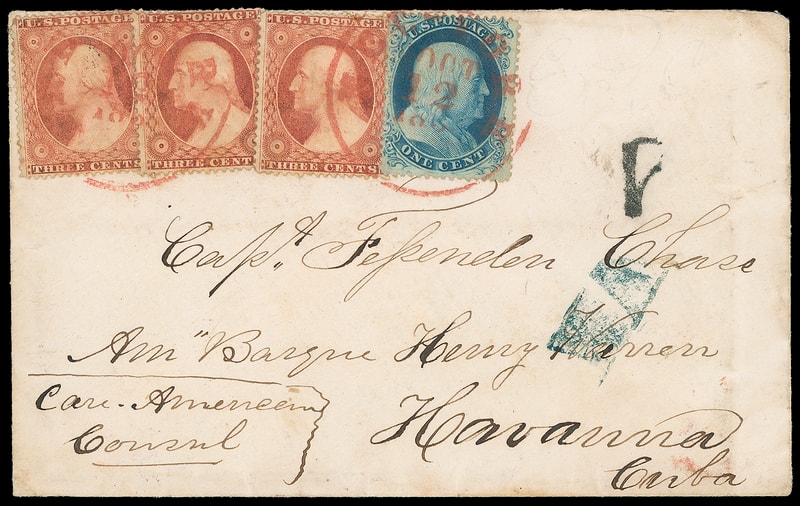 U.S. POSTAGE U.S. POSTAGE U.S. POSTAGE U.S. POSTAGE
OCT
12
185
THREE CENTS THREE CENT THREE CENTS ONE CENT
Capt Feſsenden Chase
Amn Barque Henry Warren
Care. American
Consul
Havanna
Cuba